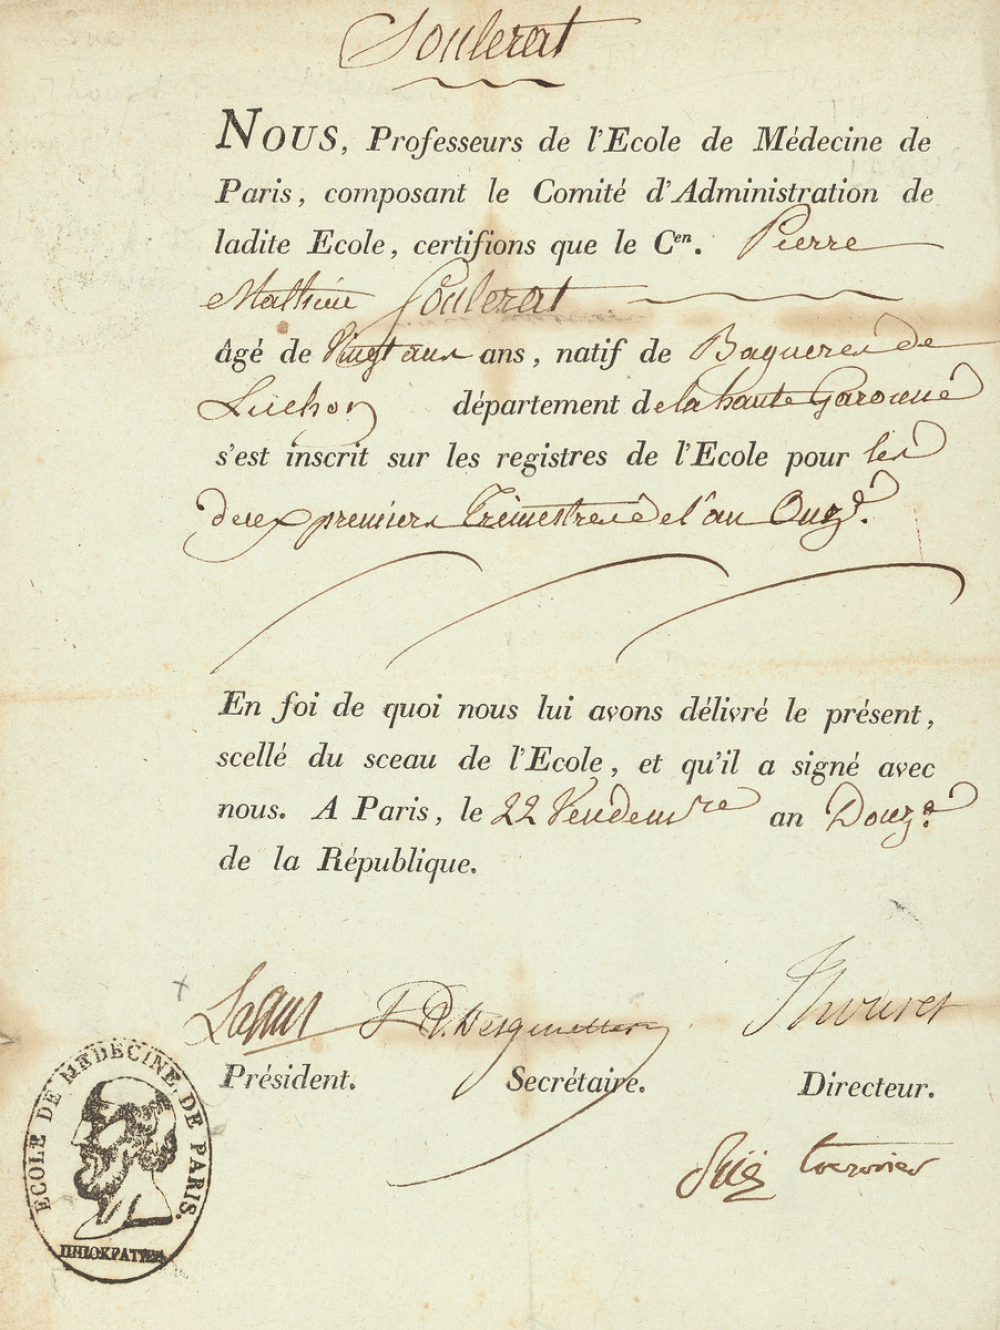 Soulerat
NOUS, Professeurs de l'Ecole de Médecine de
Paris, composant le Comité d'Administration de
ladite Ecole, certifions que le Cen. Pierre
Mathieu Soulerat
âgé de Vingt ans ans, natif de Bagneres de
Luchon département de la haute Garonne
s'est inscrit sur les registres de l'Ecole pour les
deux premiers Trimestres de l'an Onze.
En foi de quoi nous lui avons délivré le présent,
scellé du sceau de l'Ecole, et qu'il a signé avec
nous. A Paris, le 22 Vendemre an Douze.
de la République.
Thouret
Président. Secrétaire. Directeur.
ECOLE DE MEDECINE DE PARIS.